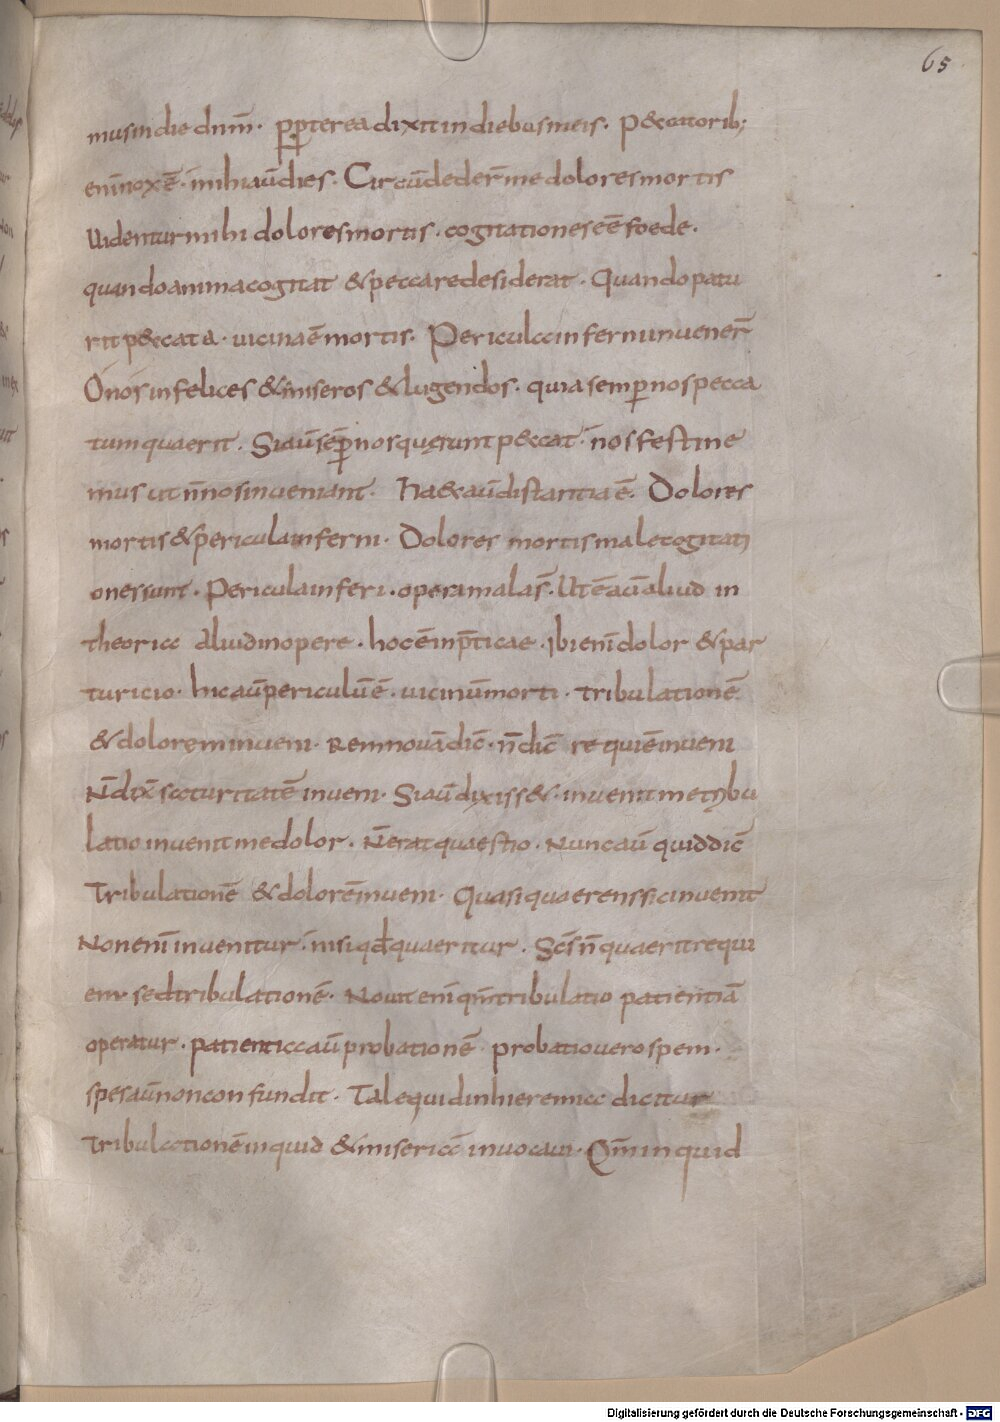 65
mus in die dnm̄. ꝓpterea dixit in diebus meis. P&catorib;
enī nox ē. mihi aū dies. Circūdeder̄ me dolores mortis
Uidentur mihi dolores mortis. cogitationes eē foede.
quando anima cogitat & peccare desiderat. Quando patu
rit p&cata. uicina ē mortis. Pericula inferni inuener̄
O nos infelices & miseros & lugendos. quia semp̄ nos pecca
tum quaerit. Si aū sēp̄ nos quęrunt p&cat. nos festine
mus ut n̄ nos inueniant. Ha& aū distantia ē. Dolores
mortis & pericula inferni. Dolores mortis male cogitati
ones sunt. Pericula inferi. opera mala s̄. Ut ē aū aliud in
theorica aliud in opere. hoc ē in p̄ticae. Ibi enī dolor & par
turicio. hic aū periculū ē. uicinū morti. tribulationē
& dolorem inueni. Rem nouā dic̄. n̄ dic̄ requiē inueni
N̄ dix̄ scoturitatē inueni. Si aū dixiss&. inuenit me tribu
latio inuenit me dolor. N̄ erat quaestio. Nunc aū quid dic̄
Tribulationē & dolorē inueni. Quasi quaerens sic inuenit
Non enī inuenitur. nisi qđ quaeritur. Sc̄s n̄ quaerit requi
em. sed tribulationē. Nouit enī qm̄ tribulatio patientiā
operatur. patientia aū probationē. probatio uero spem.
spes aū non confundit. Tale quid in hieremia dicitur
Tribulationē inquid & miseriā inuocaui. Qm̄ inquid
Digitalisierung gefördert durch die Deutsche Forschungsgemeinschaft - DFG